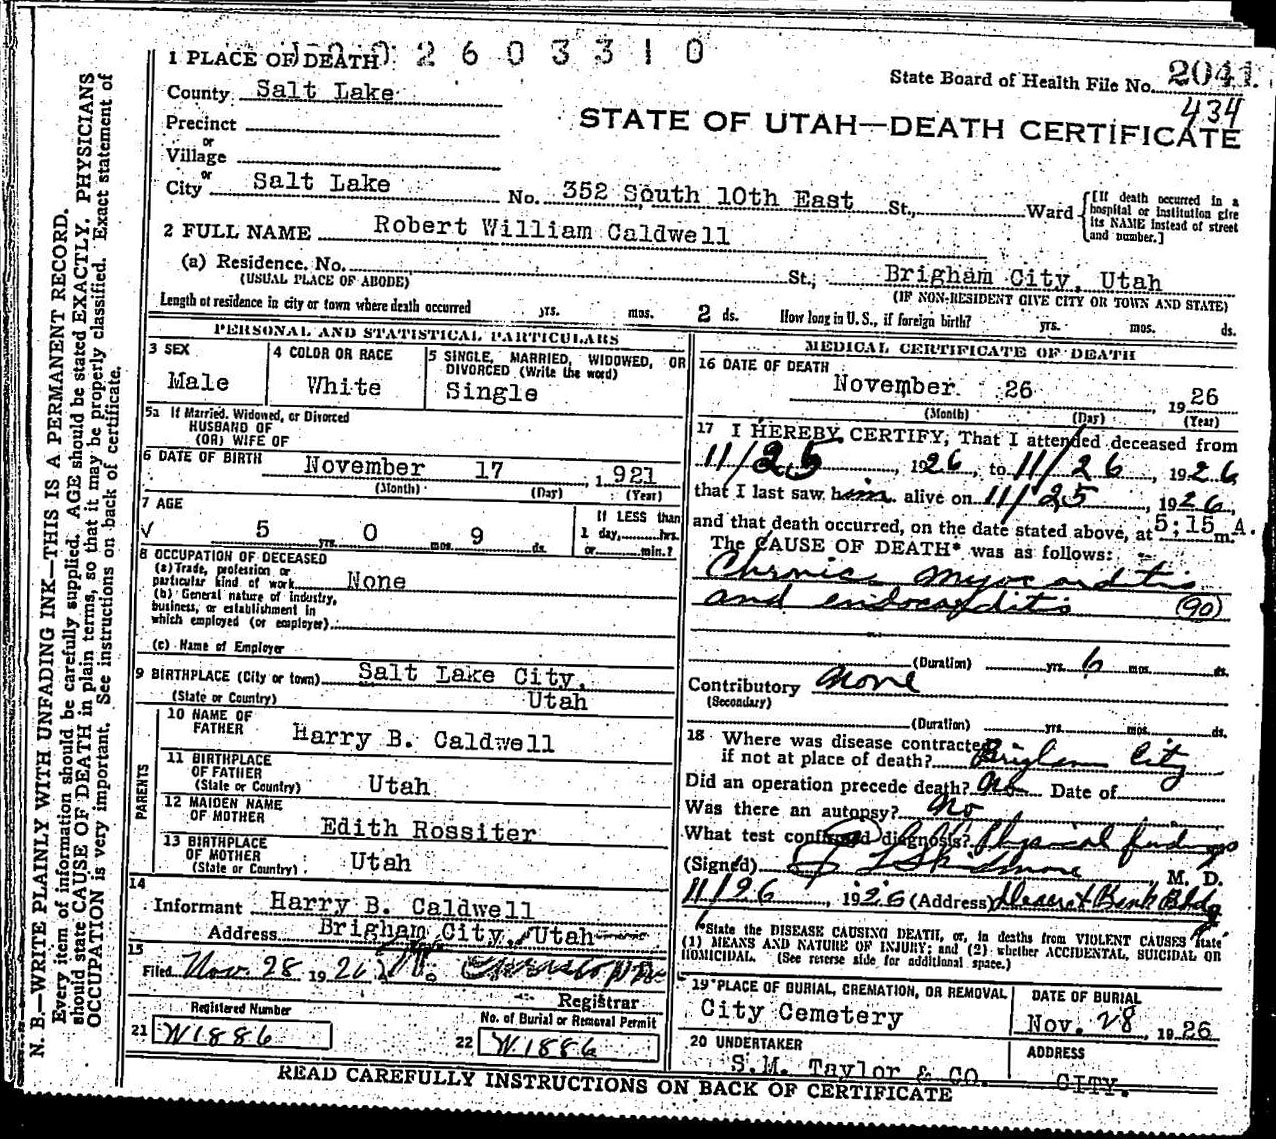 N. B.—WRITE PLAINLY WITH UNFADING INK—THIS IS A PERMANENT RECORD.
Every item of information should be carefully supplied. AGE should be stated EXACTLY. PHYSICIANS
should state CAUSE OF DEATH in plain terms, so that it may be properly classified. Exact statement of
OCCUPATION is very important. See instructions on back of certificate.
2603310
1 PLACE OF DEATH
State Board of Health File No. 2041.
434
County Salt Lake
STATE OF UTAH—DEATH CERTIFICATE
Precinct
or
Village
or
City Salt Lake No. 352 South 10th East St., Ward
[If death occurred in a
hospital or institution give
its NAME instead of street
and number.]
2 FULL NAME Robert William Caldwell
(a) Residence. No. St.; Brigham City, Utah
(USUAL PLACE OF ABODE) (IF NON-RESIDENT GIVE CITY OR TOWN AND STATE)
Length of residence in city or town where death occurred yrs. mos. 2 ds. How long in U. S., if foreign birth? yrs. mos. ds.
PERSONAL AND STATISTICAL PARTICULARS
3 SEX
Male
4 COLOR OR RACE
White
5 SINGLE, MARRIED, WIDOWED, OR
DIVORCED (Write the word)
Single
5a If Married, Widowed, or Divorced
HUSBAND OF
(OR) WIFE OF
6 DATE OF BIRTH November 17, 1921
(Month) (Day) (Year)
7 AGE
√ 5 yrs. 0 mos. 9 ds.
If LESS than
1 day, hrs.
or min.?
8 OCCUPATION OF DECEASED
(a) Trade, profession, or
particular kind of work None
(b) General nature of industry,
business, or establishment in
which employed (or employer)
(c) Name of Employer
9 BIRTHPLACE (City or town) Salt Lake City,
(State or Country) Utah
PARENTS
10 NAME OF
FATHER Harry B. Caldwell
11 BIRTHPLACE
OF FATHER
(State or Country) Utah
12 MAIDEN NAME
OF MOTHER Edith Rossiter
13 BIRTHPLACE
OF MOTHER
(State or Country) Utah
14
Informant Harry B. Caldwell
Address Brigham City, Utah
15
Filed Nov. 28 1926
Registrar
Registered Number
21 W1886
No. of Burial or Removal Permit
22 W1886
MEDICAL CERTIFICATE OF DEATH
16 DATE OF DEATH
November 26, 1926
(Month) (Day) (Year)
17 I HEREBY CERTIFY, That I attended deceased from
11/25, 1926, to 11/26, 1926
that I last saw him alive on 11/25, 1926,
and that death occurred, on the date stated above, at 5:15 A. m.
The CAUSE OF DEATH* was as follows:
Chronic myocarditis
and endocarditis (90)
(Duration) yrs. 6 mos. ds.
Contributory None
(Secondary)
(Duration) yrs. mos. ds.
18 Where was disease contracted
if not at place of death? Brigham City
Did an operation precede death? No Date of
Was there an autopsy? No
What test confirmed diagnosis? Physical findings
(Signed) Skidmore M. D.
11/26, 1926 (Address) Deseret Bank Bldg
*State the DISEASE CAUSING DEATH, or, in deaths from VIOLENT CAUSES state
(1) MEANS AND NATURE OF INJURY; and (2) whether ACCIDENTAL, SUICIDAL OR
HOMICIDAL. (See reverse side for additional space.)
19 PLACE OF BURIAL, CREMATION, OR REMOVAL
City Cemetery
DATE OF BURIAL
Nov. 28 1926
20 UNDERTAKER
S.M. Taylor & CO.
ADDRESS
CITY.
READ CAREFULLY INSTRUCTIONS ON BACK OF CERTIFICATE